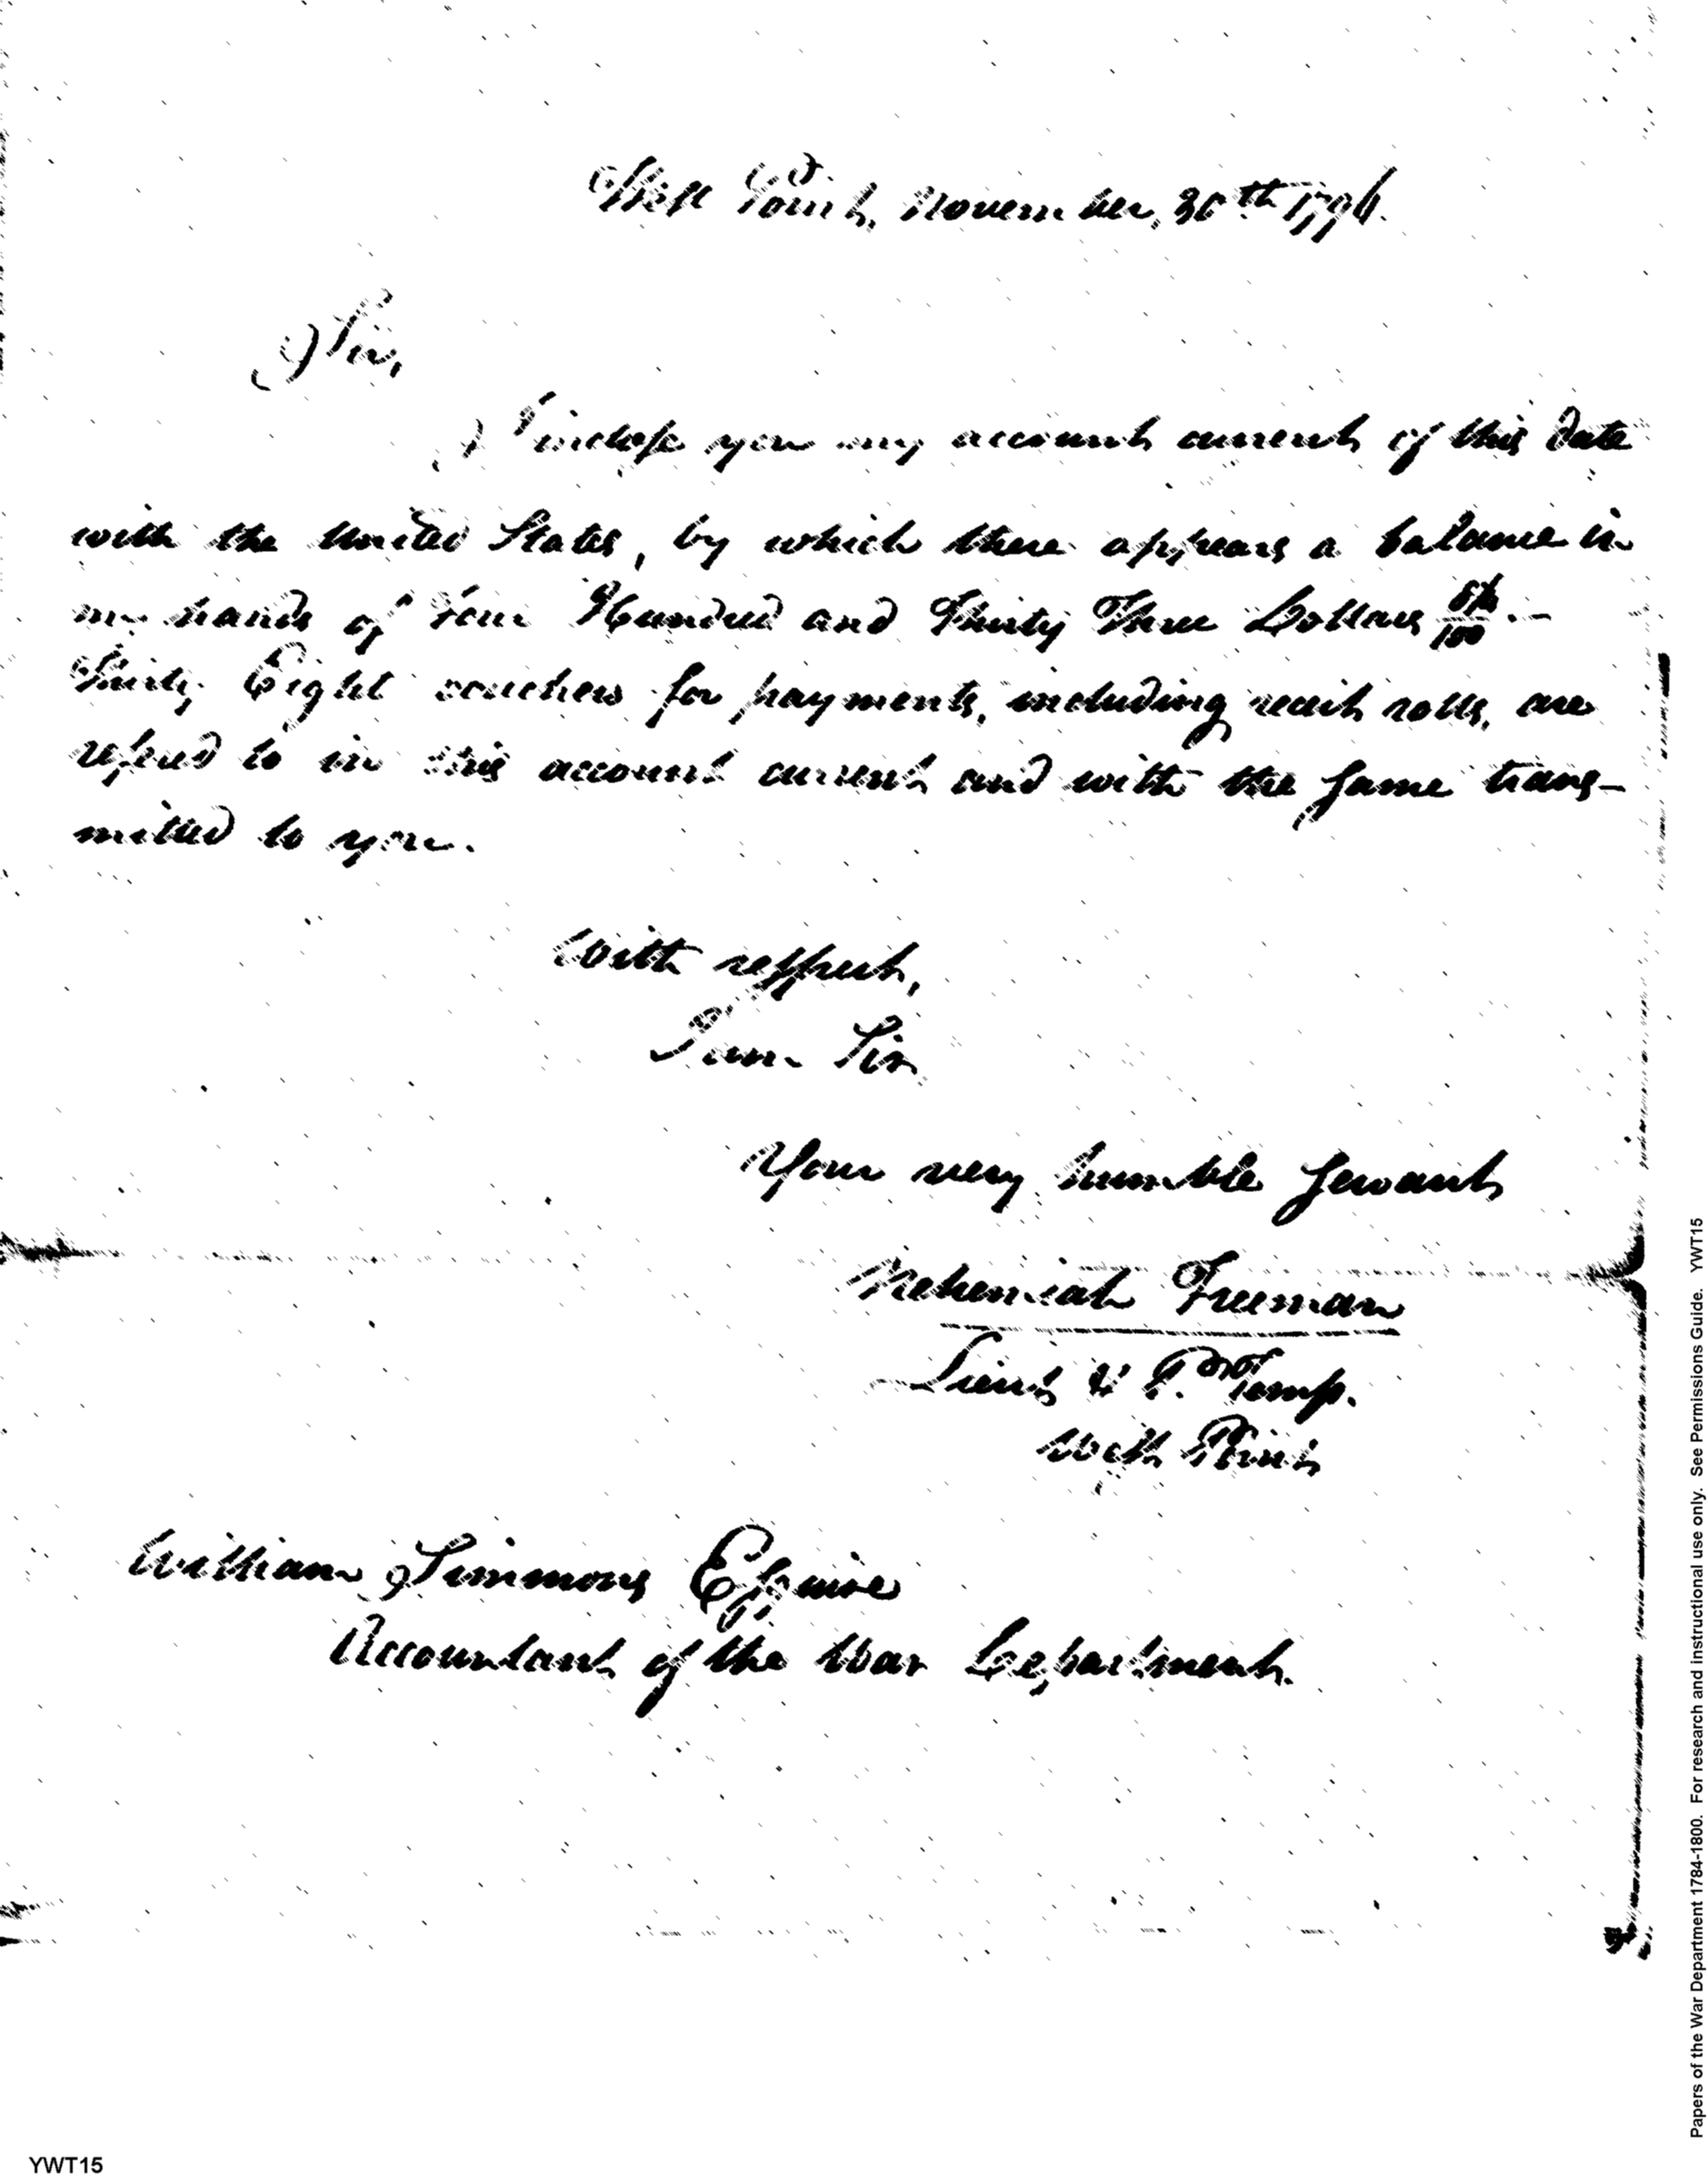 West Point, November, 30th 1796.
Sir,
I inclose you my account current of this date
with the United States, by which there appears a balance in
my hands of Four Hundred and Thirty Three Dollars /100.—
Thirty Eight vouchers for payments, including receit rolls, are
refered to in this account current and with the same trans-
mitted to you.
With respect,
I am Sir
Your very humble servant
Nehemiah Freeman
Lieut & P. Mr Temp.
West Point
William Simmons Esquire
Accountant of the War Department.
YWT15
Papers of the War Department 1784-1800. For research and instructional use only. See Permissions Guide. YWT15